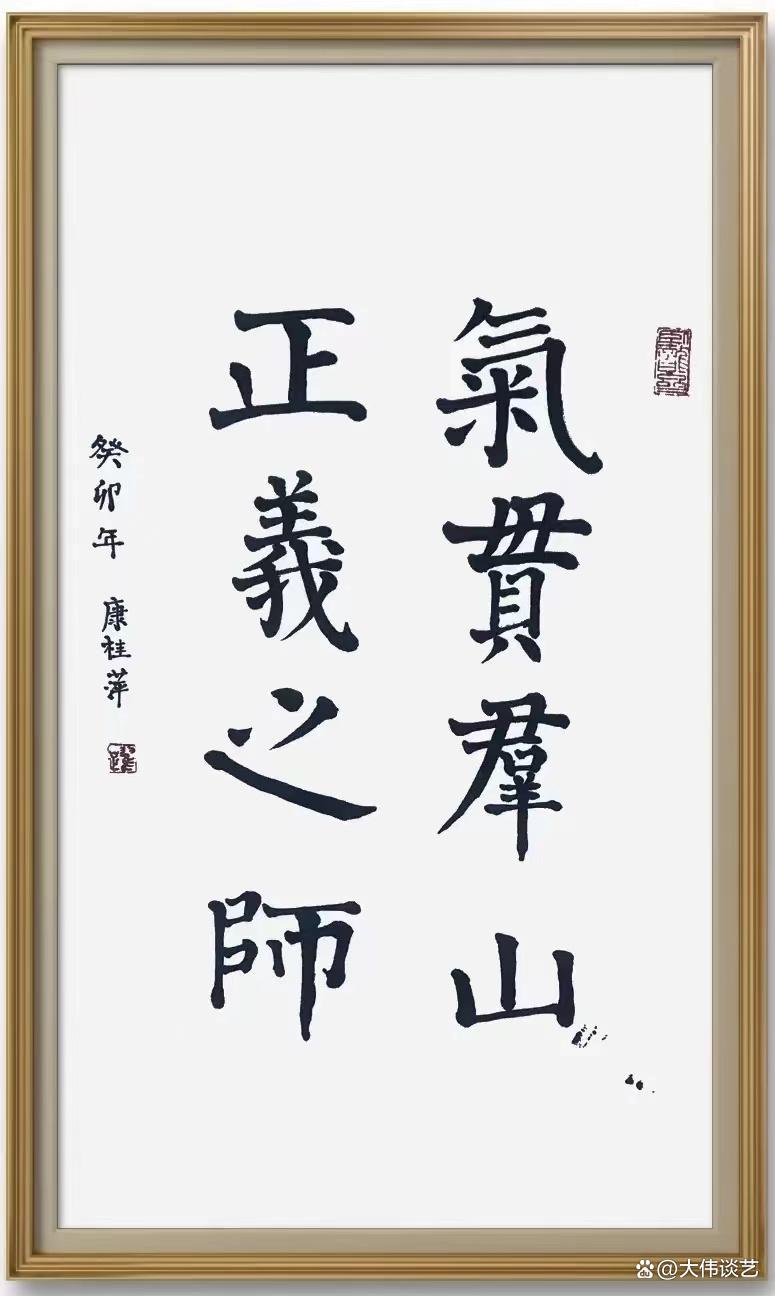 氣貫羣山
正義之師
癸卯年 康桂萍
@大伟谈艺